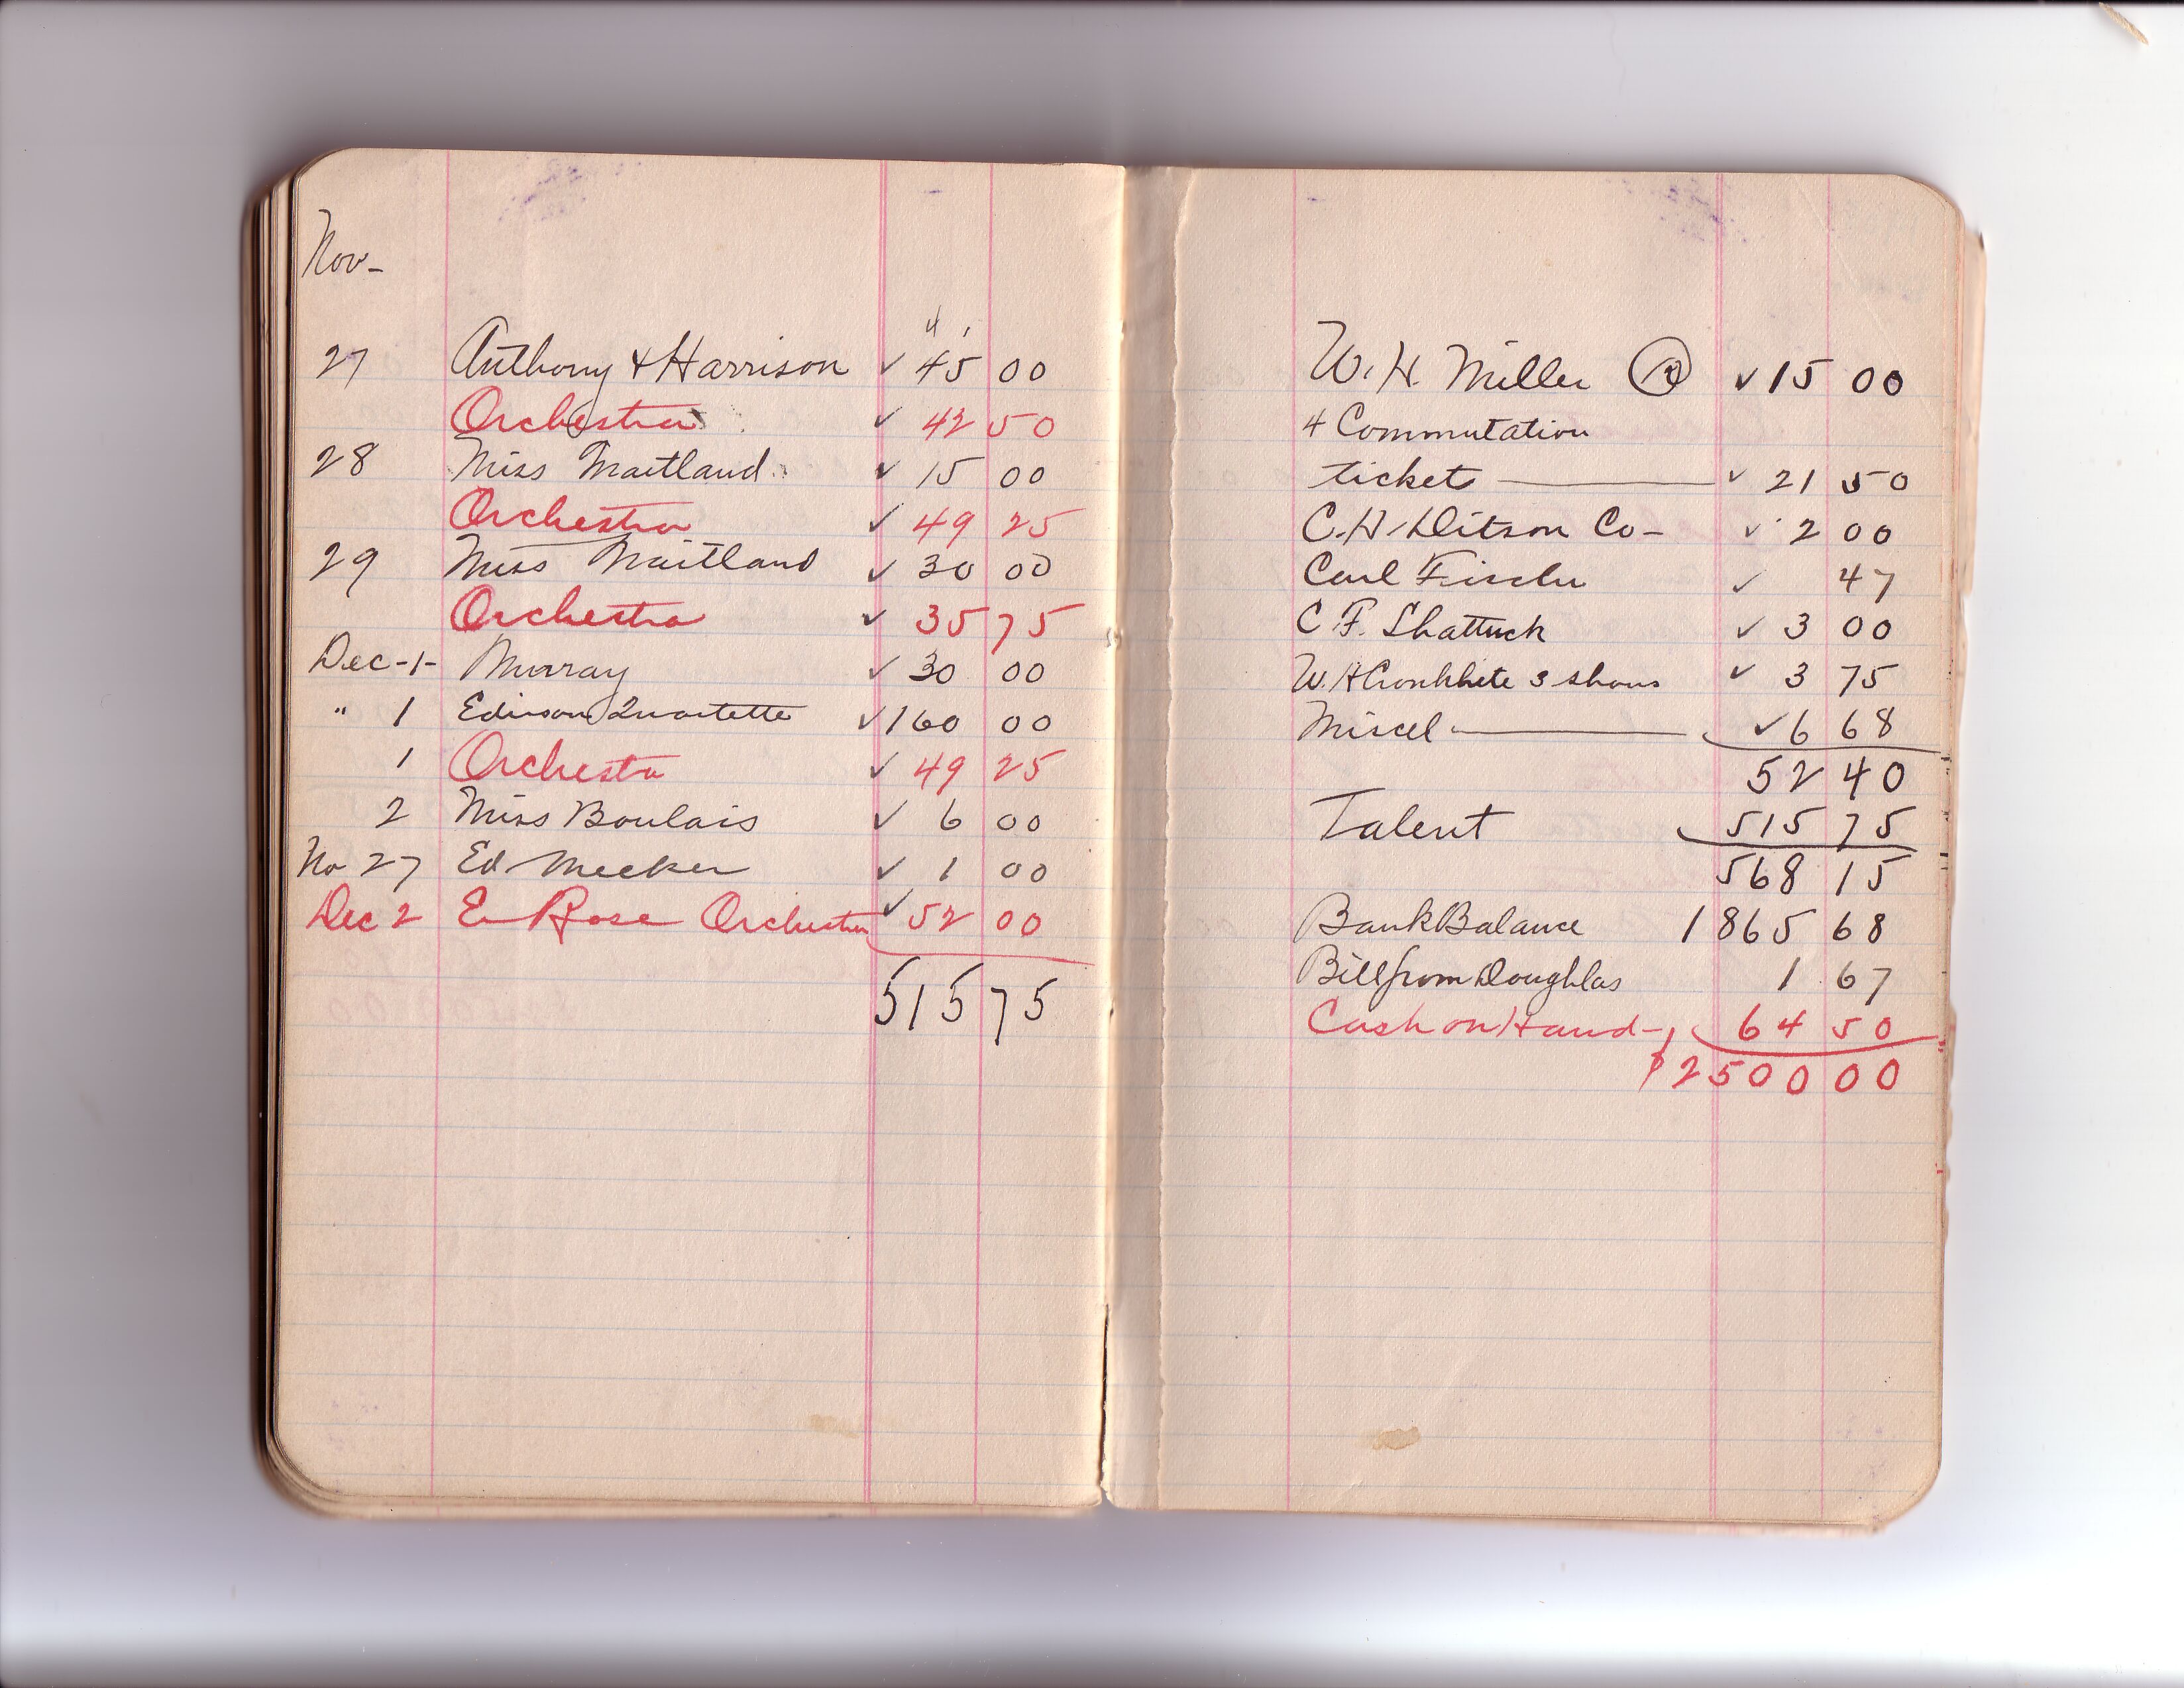 Nov-
27 Anthony & Harrison ✓ 45 00
Orchestra ✓ 42 50
28 Miss Maitland ✓ 15 00
Orchestra ✓ 49 25
29 Miss Maitland ✓ 30 00
Orchestra ✓ 35 75
Dec-1- Murray ✓ 30 00
" 1 Edison Quartette ✓ 160 00
1 Orchestra ✓ 49 25
2 Miss Boulais ✓ 6 00
No 27 Ed Meeker ✓ 1 00
Dec 2 E Rose Orchestra ✓ 52 00
515 75
W. H. Miller ✓ 15 00
4 Commutation
ticket ✓ 21 50
C. H. Ditson Co- ✓ 2 00
Carl Fischer ✓ 47
C. F. Shattuck ✓ 3 00
W. H Cronkhite 3 shows ✓ 3 75
Miscel ✓ 6 68
52 40
Talent 515 75
568 15
Bank Balance 1865 68
Bill from Doughlas 1 67
Cash on Hand- 64 50
$2500 00